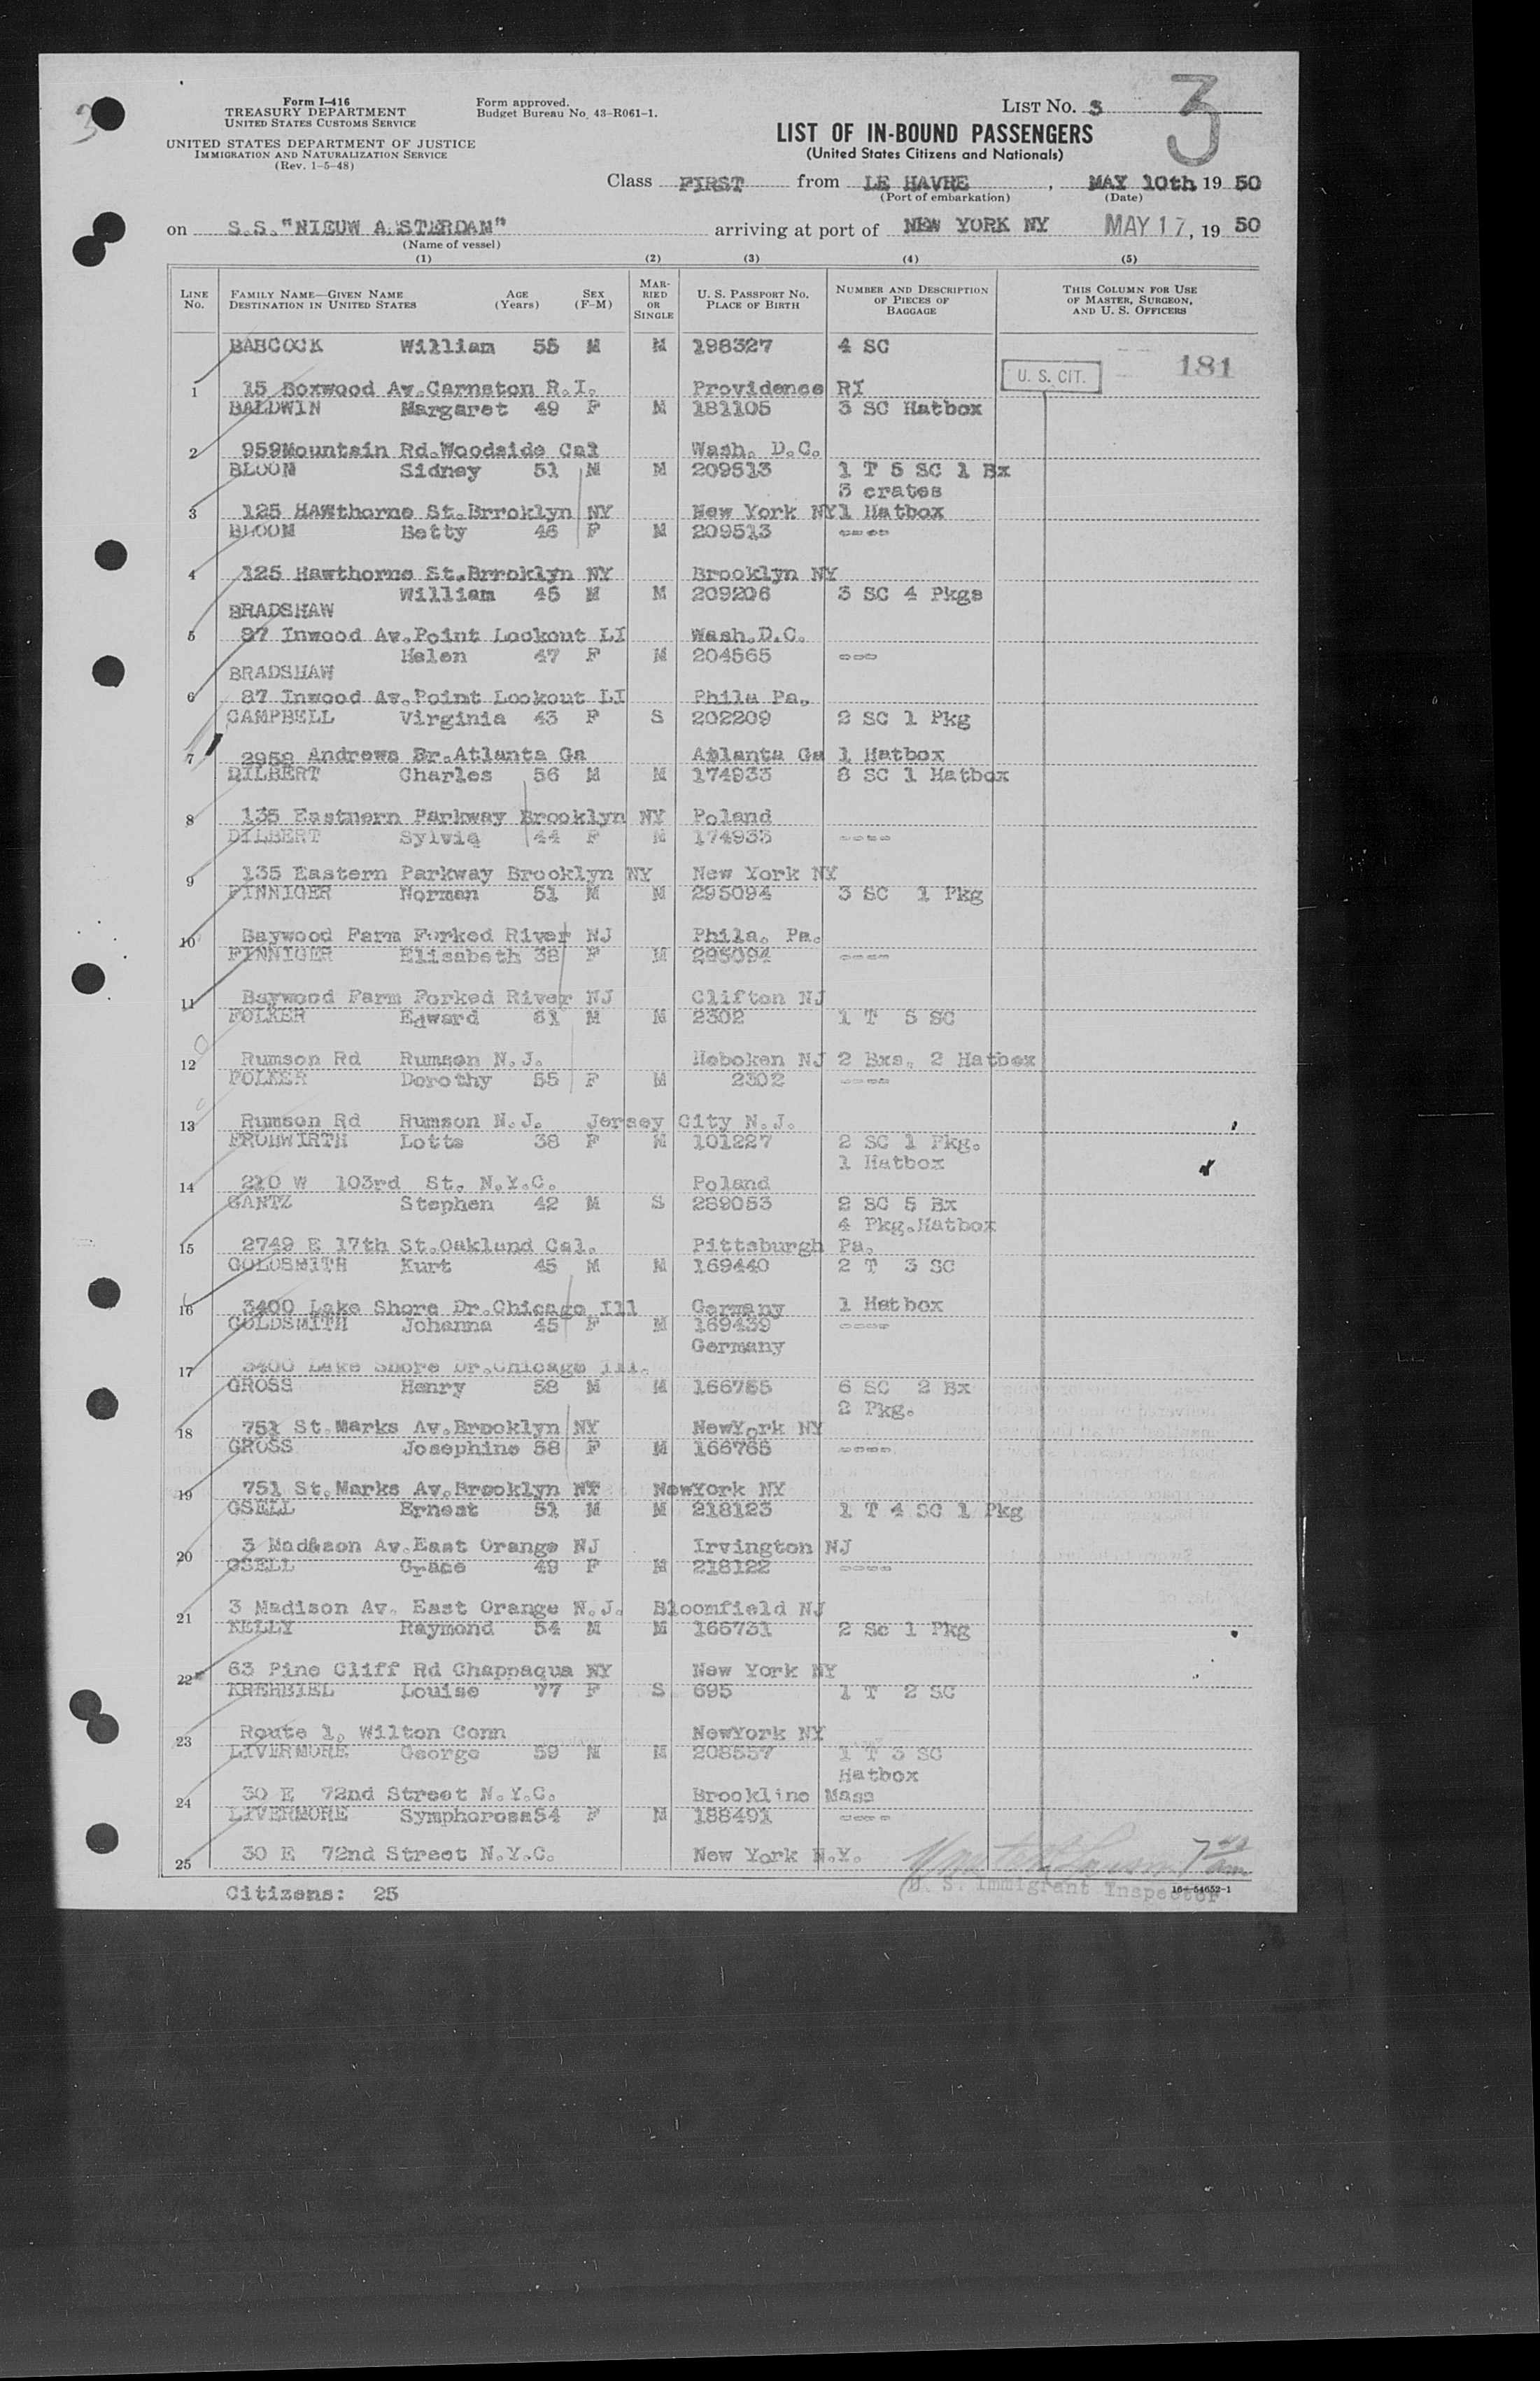 3
Form I-416
TREASURY DEPARTMENT
UNITED STATES CUSTOMS SERVICE
UNITED STATES DEPARTMENT OF JUSTICE
IMMIGRATION AND NATURALIZATION SERVICE
(Rev. 1-5-48)
Form approved.
Budget Bureau No. 43-R061-1.
LIST NO. 3
3
LIST OF IN-BOUND PASSENGERS
(United States Citizens and Nationals)
Class FIRST from LE HAVRE , MAY 10th 19 50
(Port of embarkation) (Date)
on S.S."NIEUW A.STERDAM" arriving at port of NEW YORK NY MAY 17, 19 50
(Name of vessel)
(1) (2) (3) (4) (5)
LINE NO. FAMILY NAME—GIVEN NAME DESTINATION IN UNITED STATES AGE (Years) SEX (F-M) MARRIED OR SINGLE U. S. PASSPORT NO. PLACE OF BIRTH NUMBER AND DESCRIPTION OF PIECES OF BAGGAGE THIS COLUMN FOR USE OF MASTER, SURGEON, AND U. S. OFFICERS
BABCOCK William 55 M M 198327 4 SC
U. S. CIT. 181
1 15 Boxwood Av.Carnston R.I. Providence RI
BALDWIN Margaret 49 F M 181105 3 SC Hatbox
2 959Mountain Rd.Woodside Cal Wash. D.C.
BLOOM Sidney 51 M M 209513 1 T 5 SC 1 Bx
3 crates
3 125 HAWthorne St.Brroklyn NY New York NY 1 Hatbox
BLOOM Betty 46 F M 209513 ----
4 125 Hawthorne St.Brroklyn NY Brooklyn NY
William 45 M M 209206 3 SC 4 Pkgs
BRADSHAW
5 87 Inwood Av.Point Lookout LI Wash.D.C.
Helen 47 F M 204565 ---
BRADSHAW
6 87 Inwood Av.Point Lookout LI Phila Pa.
CAMPBELL Virginia 43 F S 202209 2 SC 1 Pkg
7 2958 Andrews Dr.Atlanta Ga Atlanta Ga 1 Hatbox
DILBERT Charles 56 M M 174933 8 SC 1 Hatbox
8 135 Eastnern Parkway Brooklyn NY Poland
DILBERT Sylvia 44 F M 174933 ----
9 135 Eastern Parkway Brooklyn NY New York NY
FINNIGER Norman 51 M M 295094 3 SC 1 Pkg
10 Baywood Farm Forked River NJ Phila. Pa.
FINNIGER Elisabeth 38 F M 295094 ----
11 Baywood Farm Forked River NJ Clifton NJ
FOLKER Edward 61 M M 2302 1 T 5 SC
12 Rumson Rd Rumson N.J. Hoboken NJ 2 Bxs. 2 Hatbox
FOLKER Dorothy 55 F M 2302 ----
13 Rumson Rd Rumson N.J. Jersey City N.J.
FROHWIRTH Lotte 38 F M 101227 2 SC 1 Pkg.
1 Hatbox
14 210 W 103rd St. N.Y.C. Poland
GANTZ Stephen 42 M S 289053 2 SC 5 Bx
4 Pkg.Hatbox
15 2749 E 17th St.Oakland Cal. Pittsburgh Pa.
GOLDSMITH Kurt 45 M M 169440 2 T 3 SC
16 3400 Lake Shore Dr.Chicago Ill Germany 1 Hatbox
GOLDSMITH Johanna 45 F M 169439 ----
Germany
17 3400 Lake Shore Dr.Chicago Ill.
GROSS Henry 58 M M 166765 6 SC 2 Bx
2 Pkg.
18 751 St.Marks Av.Brooklyn NY NewYork NY
GROSS Josephine 58 F M 166765 ----
19 751 St.Marks Av.Brooklyn NY NewYork NY
GSELL Ernest 51 M M 218123 1 T 4 SC 1 Pkg
20 3 Madison Av.East Orange NJ Irvington NJ
GSELL Grace 49 F M 218122 ----
21 3 Madison Av. East Orange N.J. Bloomfield NJ
KELLY Raymond 54 M M 165731 2 Sc 1 Pkg
22 63 Pine Cliff Rd Chappaqua NY New York NY
KREHBIEL Louise 77 F S 695 1 T 2 SC
23 Route 1, Wilton Conn NewYork NY
LIVERMORE George 59 M M 208557 1 T 3 SC
Hatbox
24 30 E 72nd Street N.Y.C. Brookline Mass
LIVERMORE Symphorosa54 F M 188491 ----
25 30 E 72nd Street N.Y.C. New York N.Y.
Citizens: 25
U. S. Immigrant Inspector
16-54652-1